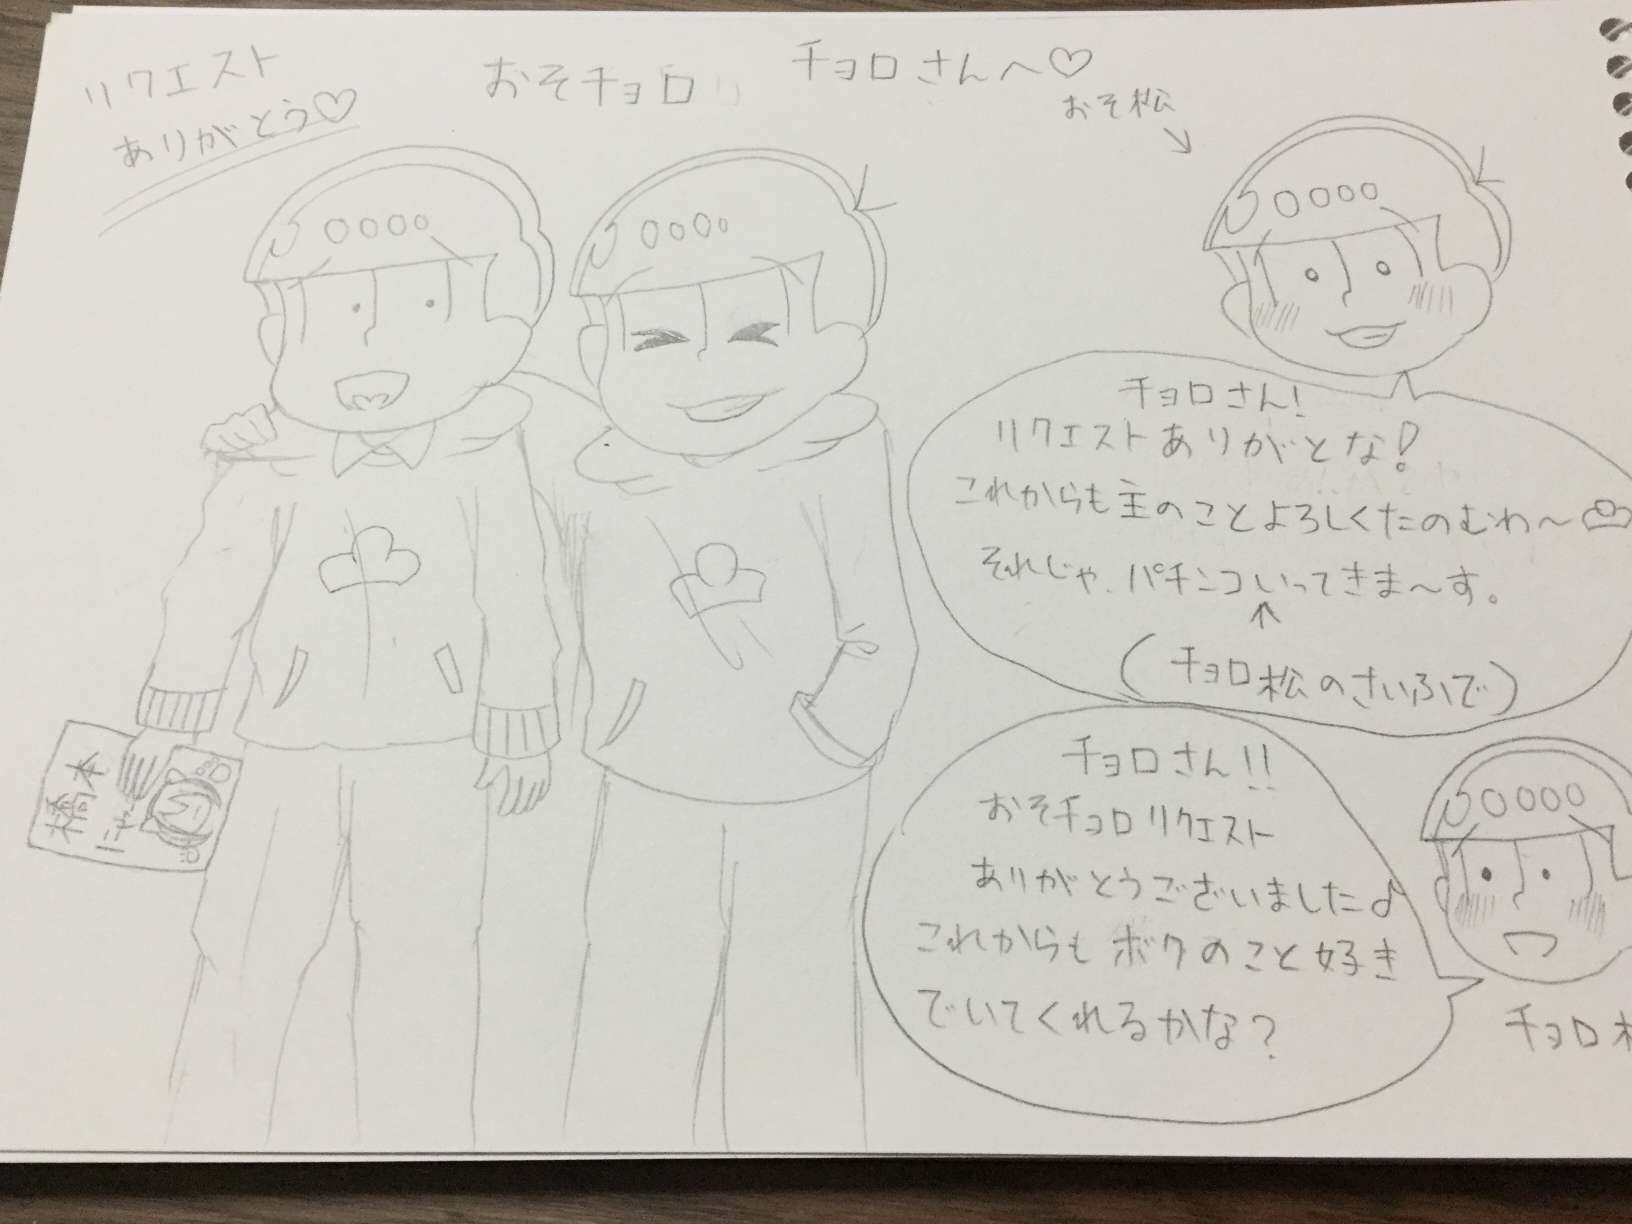 リクエスト
ありがとう♡
おそチョロ
チョロさんへ♡
おそ松
チョロさん!
リクエストありがとな!
これからも主のことよろしくたのむわ〜
それじゃ、パチンコいってきま〜す。
(チョロ松のさいふで)
チョロさん!!
おそチョロリクエスト
ありがとうございました♪
これからもボクのこと好き
でいてくれるかな?
チョロ松
橋本
にゃー